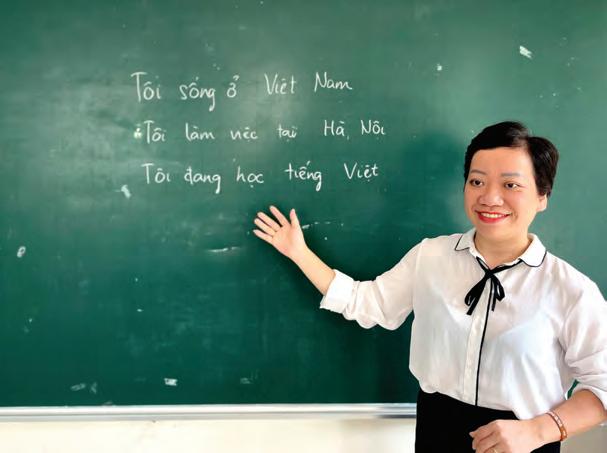 Tôi sống ở Việt Nam
Tôi làm việc tại Hà Nôi
Tôi đang học tiếng Việt